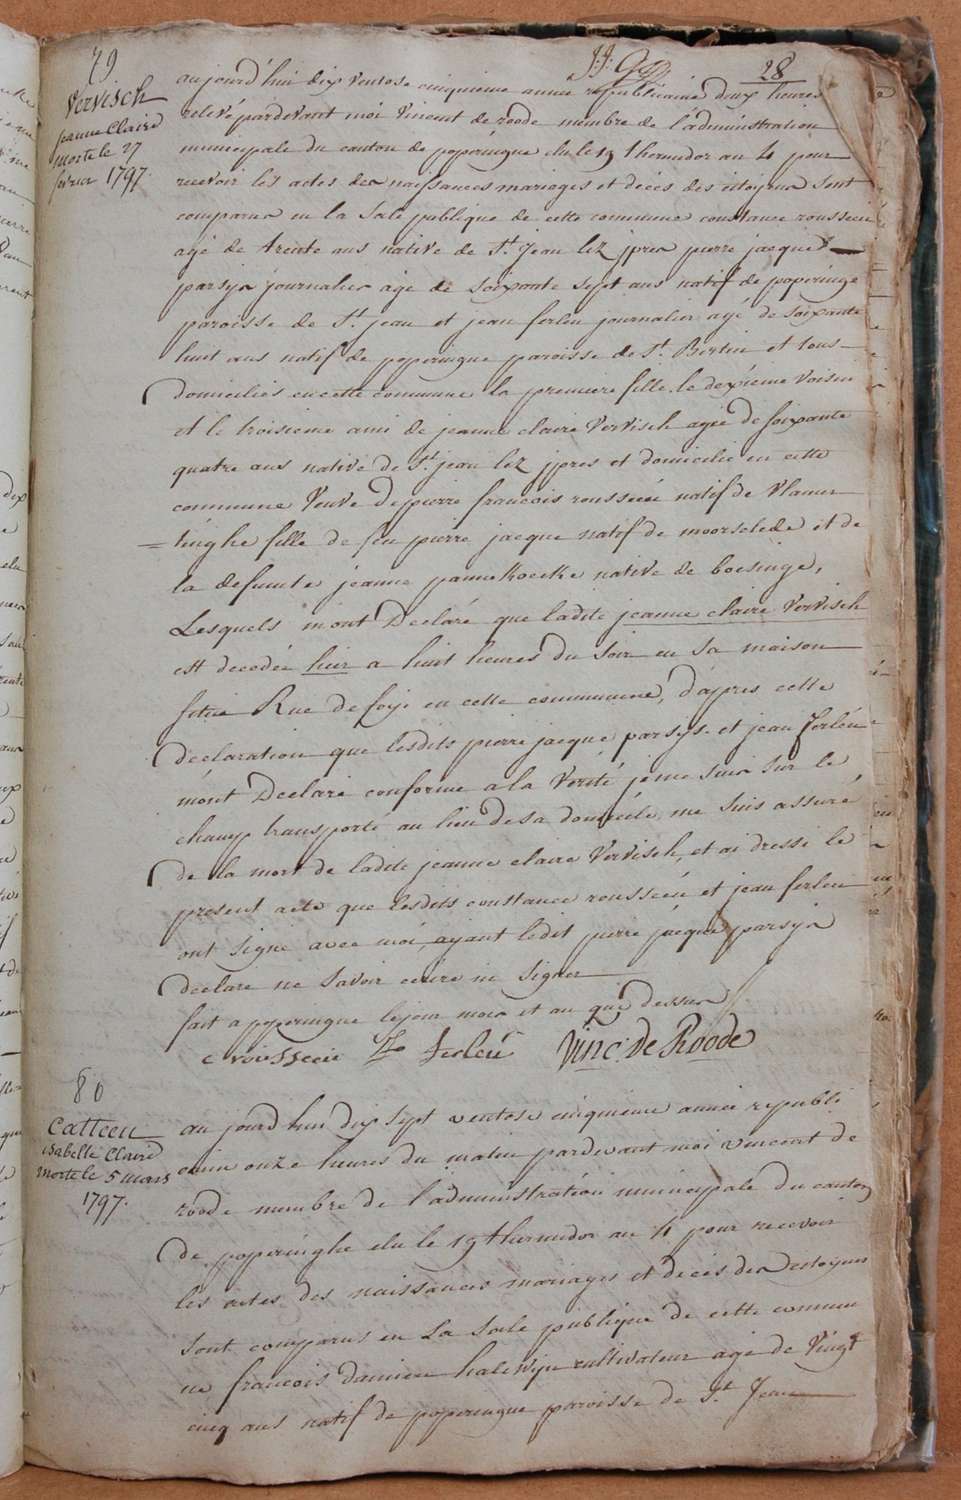 79
28
Vervisch
jeanne Claire
morte le 27
fevrier 1797
aujourd'hui dix ventose cinquieme année republicaine deux heures
relevé pardevant moi Vincent de roode membre de l'administration
municipale du canton de poperingue elu le 19 thermidor an 4 pour
recevoir les actes des naissances mariages et décés des citoyens sont
comparus en la Sale publique de cette commune constance rousseeu
agé de trente ans native de St. Jean lez jpres pierre jacque
parsijs journalier agé de soixante sept ans natif de poperinge
paroisse de St. jean et jean ferleu journalier agé de soixante
huit ans natif de poperingue paroisse de St. Bertin et tous
domiciliés en cette commune la premiere fille le dexieme voisin
et le troisieme ami de jeanne claire Vervisch agée de soixante
quatre ans native de St. jean lez jpres et domicilié en cette
commune Veuve de pierre francois rousseeu natif de Vlamer
= tinghe fille de feu pierre jacque natif de moorselede et de
la defunte jeanne pannekoecke native de boesinge,
Lesquels m'ont Declaré que ladite jeanne claire Vervisch
est decedée hier a huit heures du Soir en Sa maison
situé Rue de foyé en cette commune, d'apres cette
Declaration que lesdits pierre jacque parsys et jean ferleu
m'ont Declaré conforme a la Verité je me suis sur le
champ transporté au lieu de sa domicile, me suis assuré
de la mort de ladite jeanne claire Vervisch, et ai dressé le
present acte que lesdits constance rousseeu et jean ferleu
ont signé avec moi ayant ledit pierre jacque parsijs
declare ne savoir ecrire ni signer
fait a poperingue le jour mois et an que dessus
c rousseeu ferleu Vinc. de Roode
80
Catteeu
isabelle Claire
morte le 5 mars
1797.
au jourd'hui dix sept ventose cinquieme année republi
caine onze heures du matin pardevant moi vincent de
roode membre de l'administration municipale du canton
de poperinghe elu le 19 thermidor an 4 pour recevoir
les actes des naissances mariages et décés des citoyens
sont comparus en La Sale publique de cette commu
ne francois damien halewijn cultivateur agé de Vingt
cinq ans natif de poperingue paroisse de St. Jean